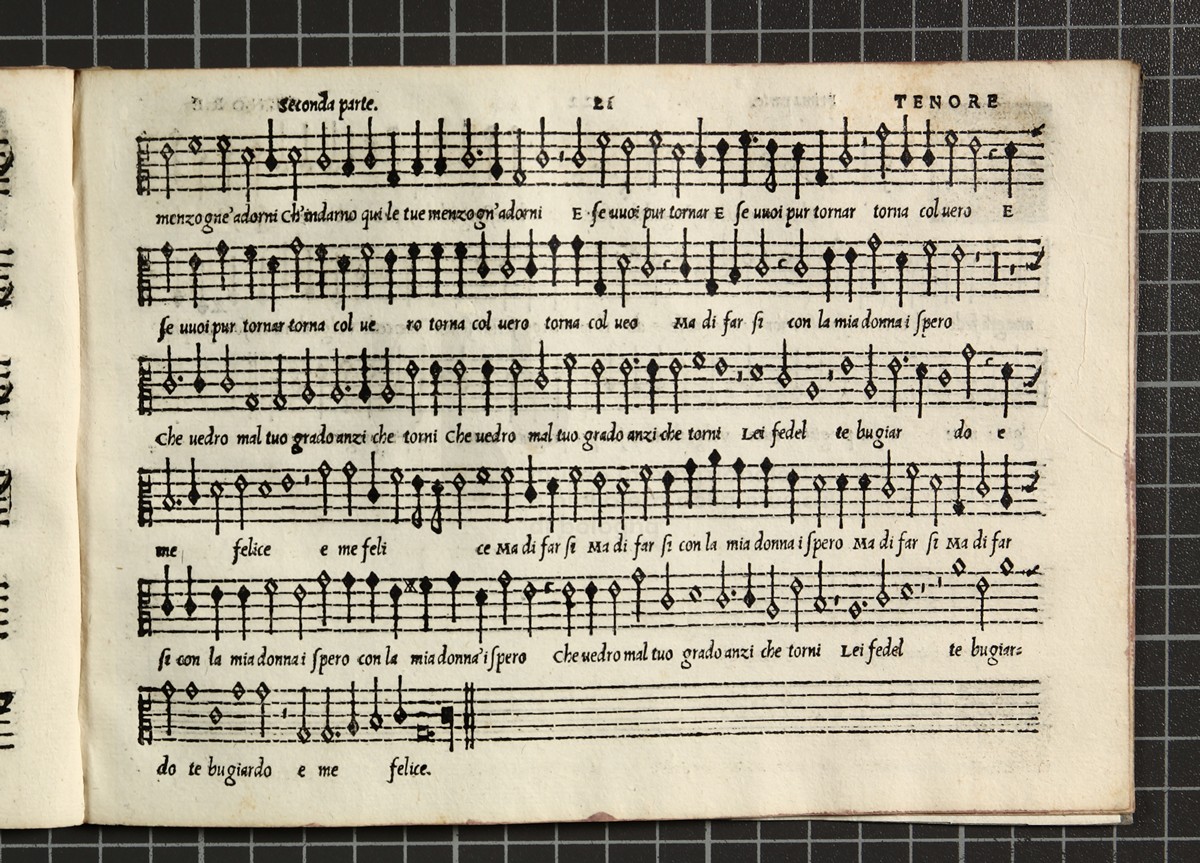 Seconda parte. 21 TENORE
menzogne'adorni Ch'indarno qui le tue menzogn'adorni E se uuoi pur tornar E se uuoi pur tornar torna col uero E
se uuoi pur tornar torna col ue ro torna col uero torna col ueo Ma di far si con la mia donna i spero
Che uedro mal tuo grado anzi che torni Che uedro mal tuo grado anzi che torni Lei fedel te bugiar do e
me felice e me feli ce Ma di far si Ma di far si con la mia donna i spero Ma di far si Ma di far
si con la mia donna i spero con la mia donna'i spero Che uedro mal tuo grado anzi che torni Lei fedel te bugiar=
do te bugiardo e me felice.